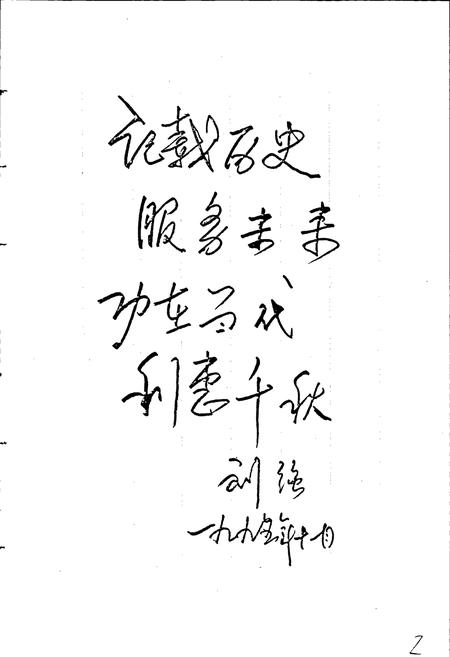 记载历史
服务未来
功在当代
利惠千秋
刘强
一九九五年十一月
2